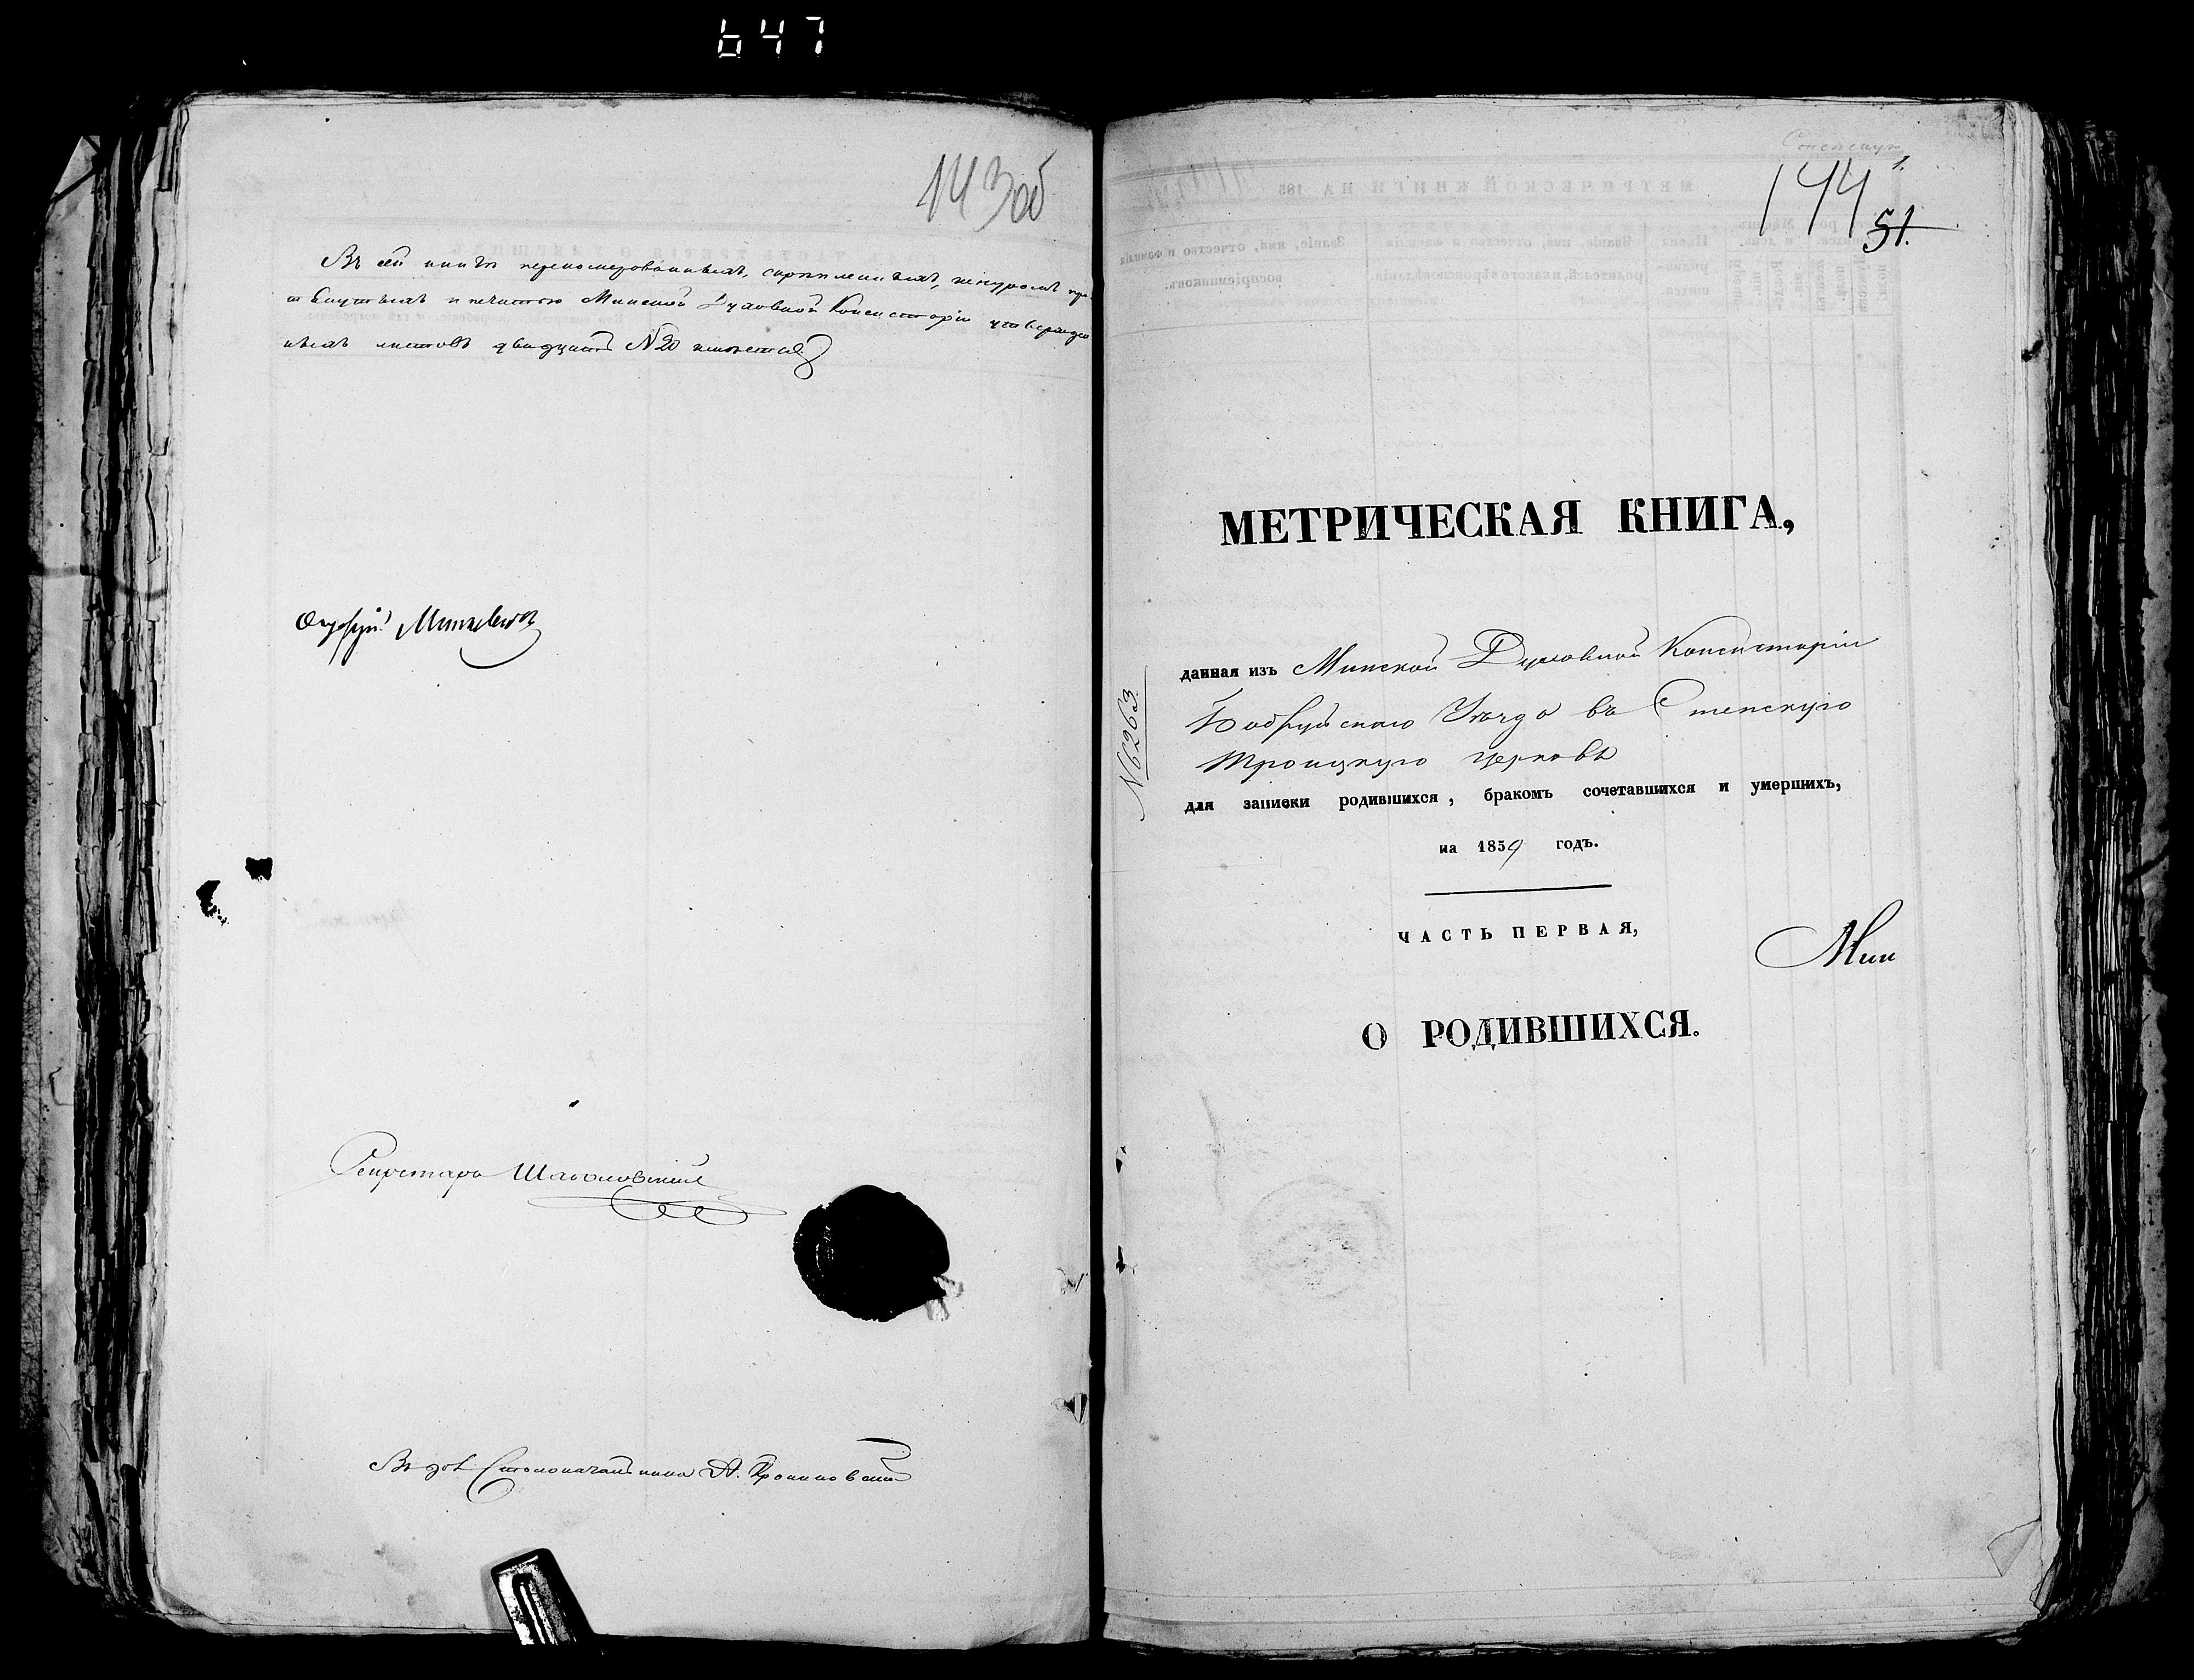 647
143об
Въ сей книгѣ перенумерованныхъ, скрѣпленныхъ, шнуромъ про-
тянутыхъ и печатью Минской Духовной Консисторіи утвержден
ныхъ листовъ двадцать №20 имѣется.
Секретарь
Въ дол. Столоначальника А.
Стенскую
144
1
51.
МЕТРИЧЕСКАЯ КНИГА,
данная изъ Минской Духовной Консисторіи
Бобруйскаго Уѣзда въ Стенскую
Троицкую церковь
для записки родившихся, бракомъ сочетавшихся и умершихъ,
на 1859 годъ.
№6263
ЧАСТЬ ПЕРВАЯ,
Мин
О РОДИВШИХСЯ.